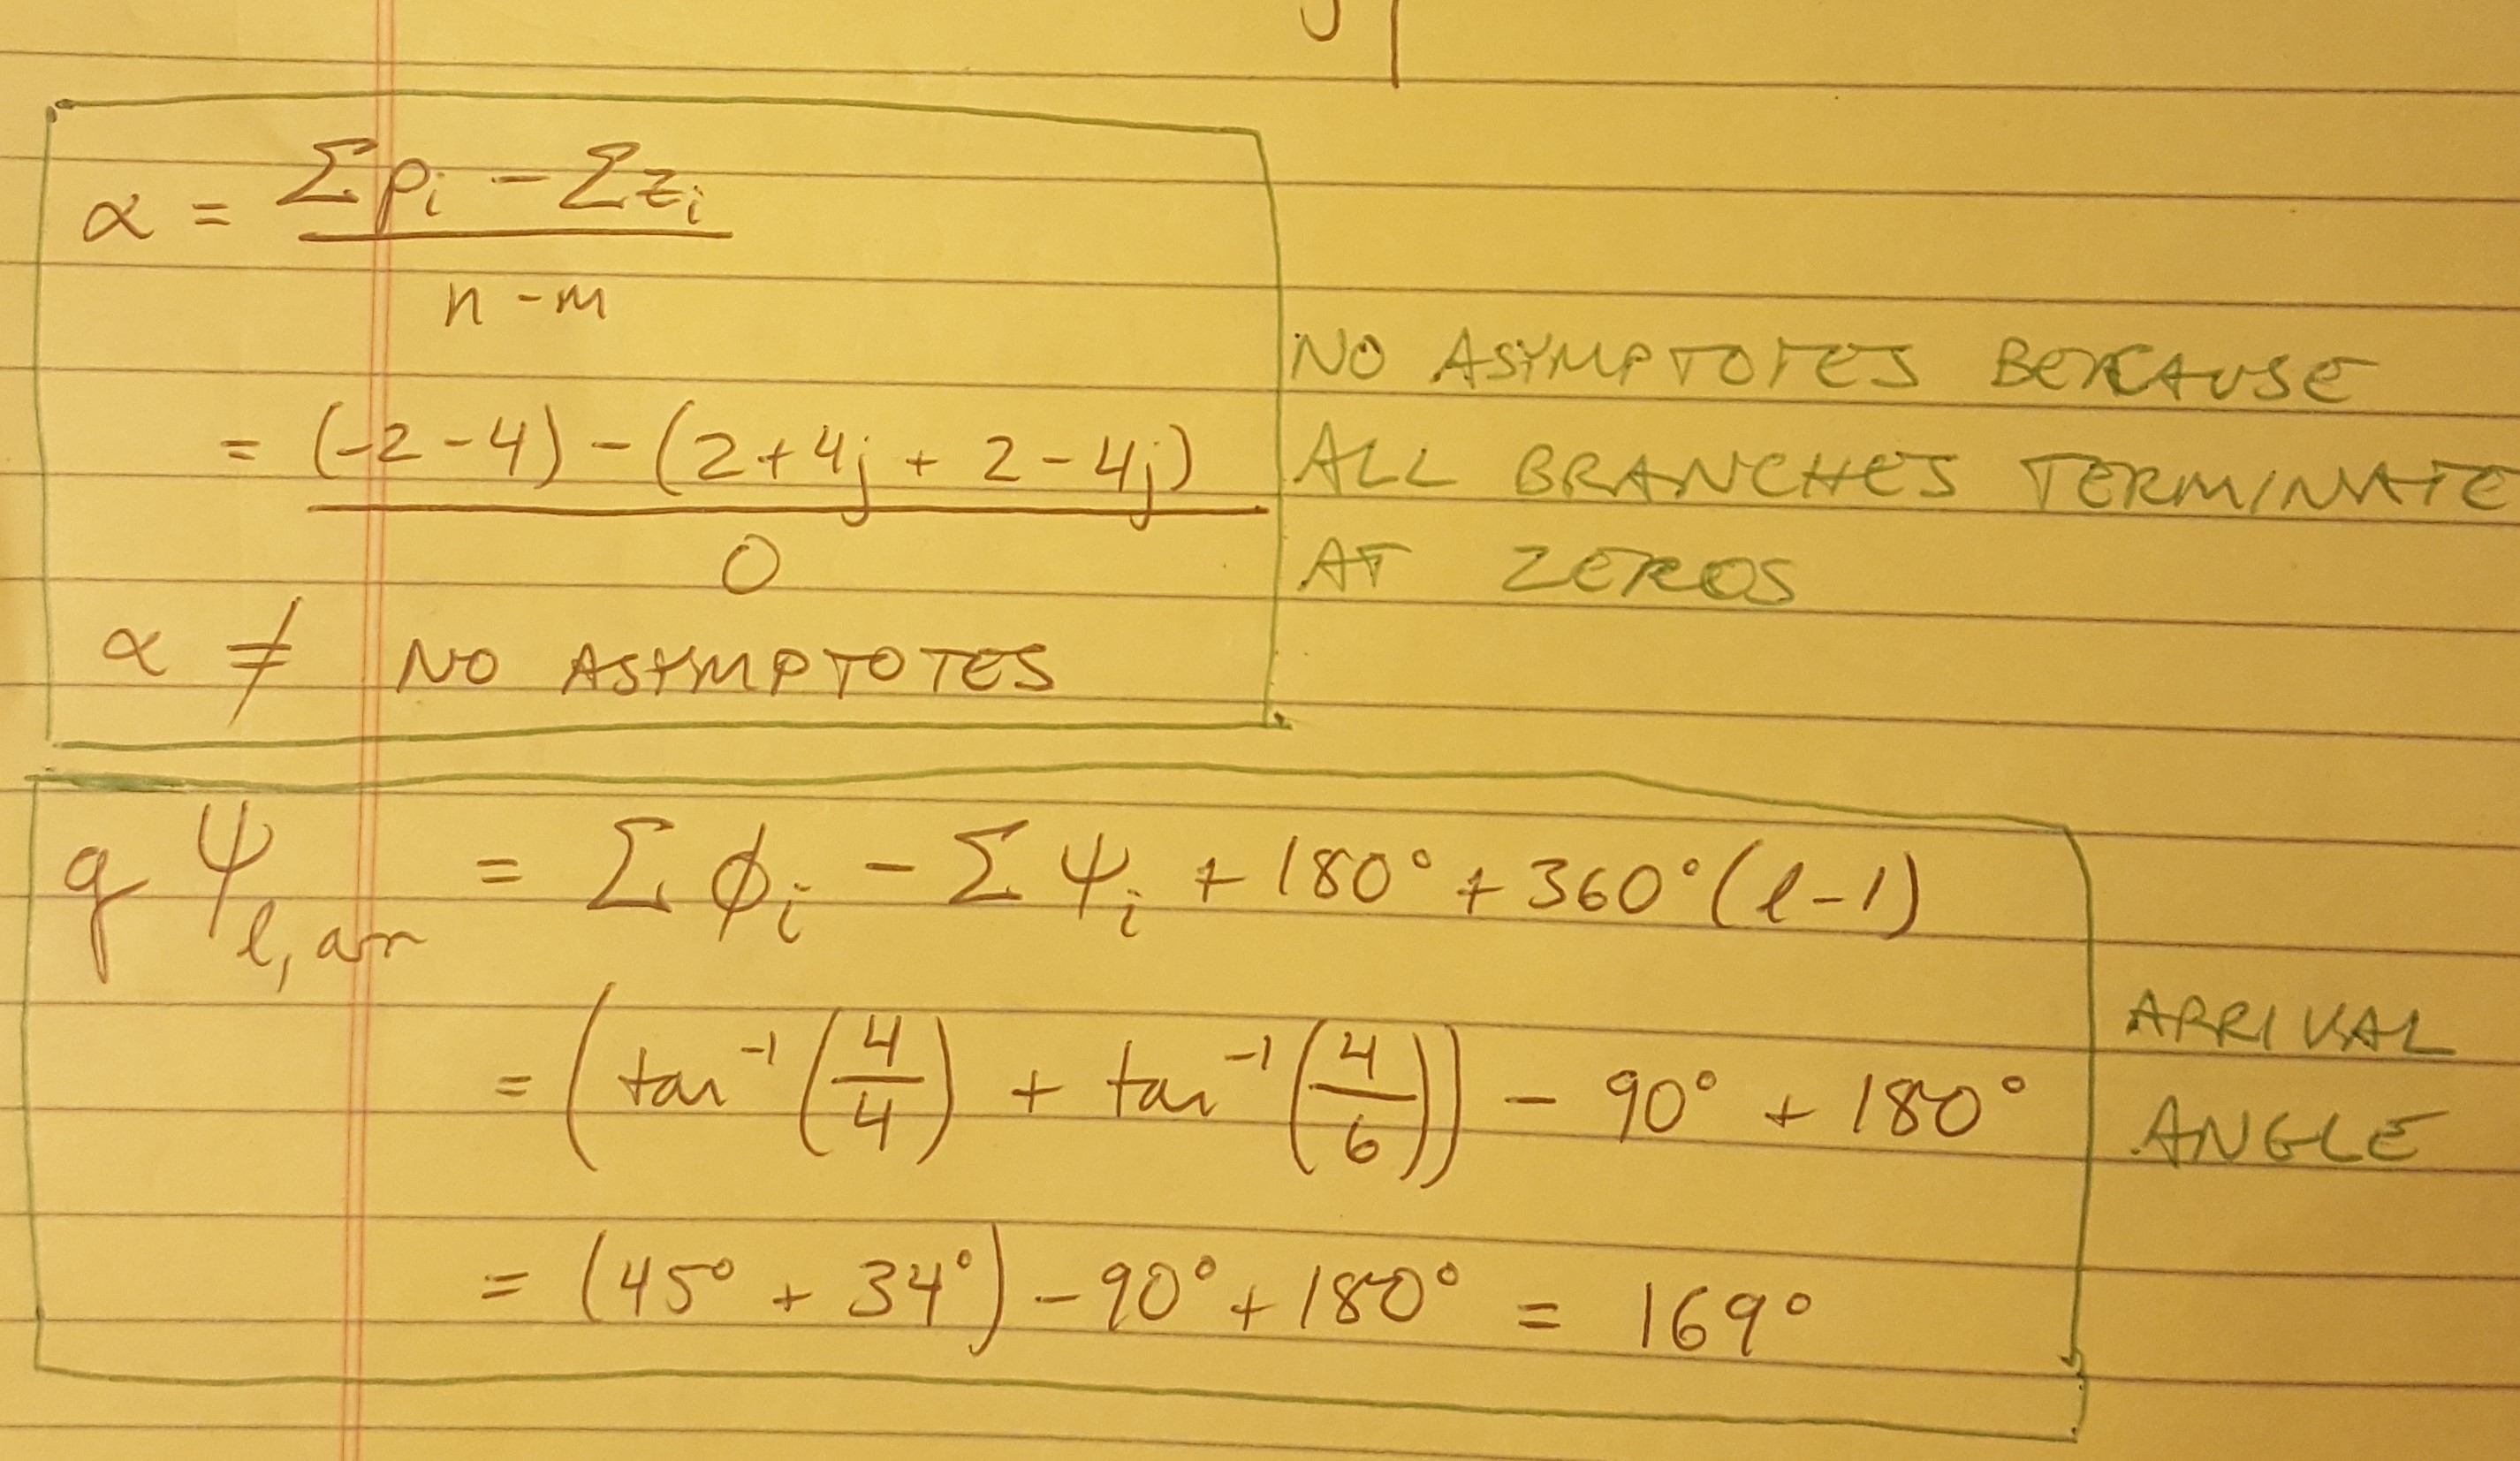 α = (Σpi - Σzi) / (n - m)
= ((-2 - 4) - (2 + 4j + 2 - 4j)) / 0
α ≠ NO ASYMPTOTES
NO ASYMPTOTES BECAUSE
ALL BRANCHES TERMINATE
AT ZEROS
q ψl, arr = Σ ϕi - Σ ψi + 180° + 360° (l - 1)
= (tan⁻¹(4/4) + tan⁻¹(4/6)) - 90° + 180°
= (45° + 34°) - 90° + 180° = 169°
ARRIVAL
ANGLE